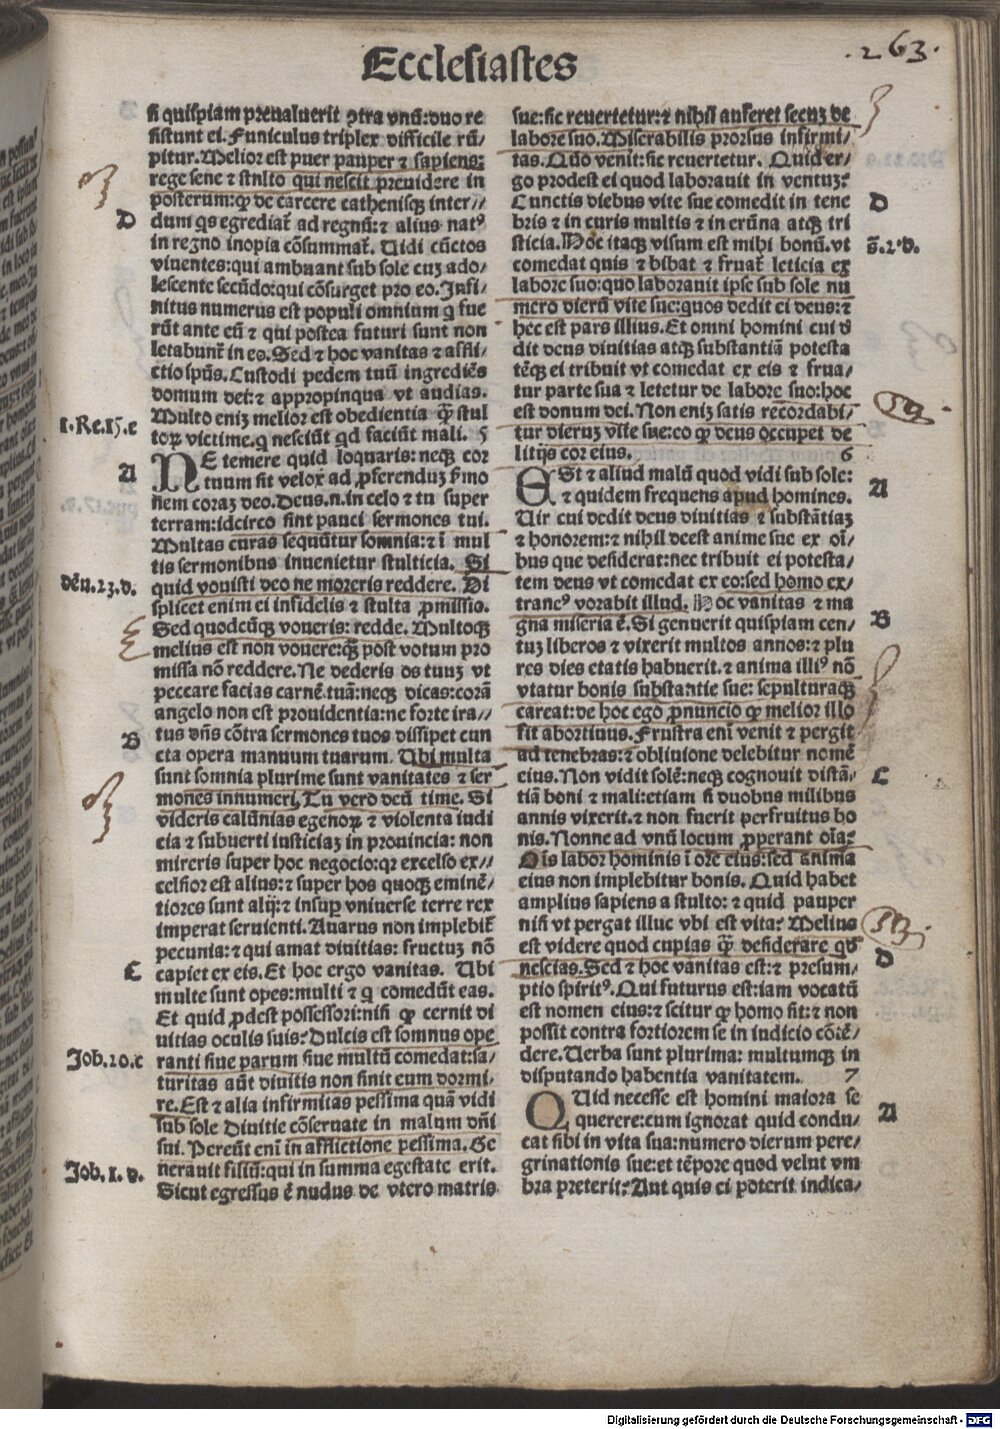 Ecclesiastes
.263.
si quispiam preualuerit ꝯtra vnū:duo re
sistunt ei. Funiculus triplex difficile rū/
pitur. Melior est puer pauper ⁊ sapiens:
rege sene ⁊ stulto qui nescit preuidere in
posterum:ꝙ de carcere cathenisqꝫ inter//
D
dum qs egrediat̄ ad regnū:⁊ alius natꝰ
in regno inopia cōsummat̄. Uidi cūctos
viuentes:qui ambulant sub sole cuꝫ ado/
lescente secūdo:qui cōsurget pro eo. Infi/
nitus numerus est populi omnium q fue
rūt ante eū ⁊ qui postea futuri sunt non
letabunt̄ in eo. Sed ⁊ hoc vanitas ⁊ affli/
ctio spūs. Custodi pedem tuū ingrediēs
domum dei:⁊ appropinqua vt audias.
Multo eniꝫ melior est obedientia ꝙ̄ stul
1.Re.15.c
toꝝ victime.q nesciūt qd faciūt mali. 5
NE temere quid loquaris:neqꝫ cor
A
tuum sit velox ad ꝓferenduꝫ ẜmo
nem coraꝫ deo. Deus.n.in celo ⁊ tu super
terram:idcirco sint pauci sermones tui.
Multas curas sequūtur somnia:⁊ ī mul
tis sermonibus inuenietur stulticia. Si
deū.23.d.
quid vouisti deo ne moreris reddere. Di
splicet enim ei infidelis ⁊ stulta ꝓmissio.
Sed quodcūqꝫ voueris: redde. Multoqꝫ
melius est non vouere:qꝫ̄ post votum pro
missa nō reddere. Ne dederis os tuuꝫ vt
peccare facias carnē tuā:neqꝫ dicas:corā
angelo non est prouidentia:ne forte ira//
B
tus dn̄s cōtra sermones tuos dissipet cun
cta opera manuum tuarum. Ubi multa
sunt somnia plurime sunt vanitates ⁊ ser
mones innumeri. Tu vero deū time. Si
videris calūnias egenoꝝ ⁊ violenta iudi
cia ⁊ subuerti iusticiaꝫ in prouincia: non
mireris super hoc negocio:qꝛ excelso ex//
celsior est alius:⁊ super hos quoqꝫ eminē/
tiores sunt alij:⁊ insuꝑ vniuerse terre rex
imperat seruienti. Auarus non implebit̄
pecunia:⁊ qui amat diuitias: fructuꝫ nō
C
capiet ex eis. Et hoc ergo vanitas. Ubi
multe sunt opes:multi ⁊ q comedūt eas.
Et quid ꝓdest possessori:nisi ꝙ cernit di
uitias oculis suis? Dulcis est somnus ope
Job.20.c
ranti siue parum siue multū comedat:sa/
turitas aūt diuitis non sinit eum dormi/
re. Est ⁊ alia infirmitas pessima quā vidi
sub sole Diuitie cōseruate in malum dn̄i
sui. Pereūt enī in afflictione pessima. Ge
Job.1.d.
nerauit filiū:qui in summa egestate erit.
Sicut egressus ē nudus de vtero matris
sue:sic reuertetur:⁊ nihil auferet secuꝫ de
labore suo. Miserabilis prorsus infirmi/
tas. Quo venit:sic reuertetur. Quid er/
go prodest ei quod laborauit in ventuꝫ?
Cunctis diebus vite sue comedit in tene
D
bris ⁊ in curis multis ⁊ in erūna atqꝫ tri
sticia. Hoc itaqꝫ visum est mihi bonū. vt
s̄.2.d.
comedat quis ⁊ bibat ⁊ fruat̄ leticia ex
labore suo:quo laborauit ipse sub sole nu
mero dierū vite sue:quos dedit ei deus:⁊
hec est pars illius. Et omni homini cui d̄
dit deus diuitias atqꝫ substantiā potesta
tēqꝫ ei tribuit vt comedat ex eis ⁊ frua/
tur parte sua ⁊ letetur de labore suo:hoc
est donum dei. Non eniꝫ satis recordabi/
tur dieruꝫ vite sue:eo ꝙ deus occupet de
litijs cor eius. 6
ESt ⁊ aliud malū quod vidi sub sole:
A
⁊ quidem frequens apud homines.
Uir cui dedit deus diuitias ⁊ substātiaꝫ
⁊ honorem:⁊ nihil deest anime sue ex oī/
bus que desiderat:nec tribuit ei potesta/
tem deus vt comedat ex eo:sed homo ex/
traneꝰ vorabit illud. Hoc vanitas ⁊ ma
gna miseria ē. Si genuerit quispiam cen/
B
tuꝫ liberos ⁊ vixerit multos annos:⁊ plu
res dies etatis habuerit.⁊ anima illiꝰ nō
vtatur bonis substantie sue: sepulturaqꝫ
careat:de hoc ego ꝓnuncio ꝙ melior illo
sit abortiuus. Frustra enī venit ⁊ pergit
ad tenebras:⁊ obliuione delebitur nomē
eius. Non vidit solē:neqꝫ cognouit distā/
C
tiā boni ⁊ mali:etiam si duobus milibus
annis vixerit.⁊ non fuerit perfruitus bo
nis. Nonne ad vnū locum ꝓperant oīa?
Ois labor hominis ī ore eius:sed anima
eius non implebitur bonis. Quid habet
amplius sapiens a stulto: ⁊ quid pauper
nisi vt pergat illuc vbi est vita? Melius
est videre quod cupias qꝫ̄ desiderare qd̄
nescias. Sed ⁊ hoc vanitas est:⁊ presum/
D
ptio spiritꝰ. Qui futurus est:iam vocatū
est nomen eius:⁊ scitur ꝙ homo sit:⁊ non
possit contra fortiorem se in iudicio cōtē/
dere. Uerba sunt plurima: multumqꝫ in
disputando habentia vanitatem. 7
QUid necesse est homini maiora se
A
querere:cum ignorat quid condu/
cat sibi in vita sua:numero dierum pere/
grinationis sue:et tēpore quod velut vm
bra preterit? Aut quis ei poterit indica/
Digitalisierung gefördert durch die Deutsche Forschungsgemeinschaft - DFG